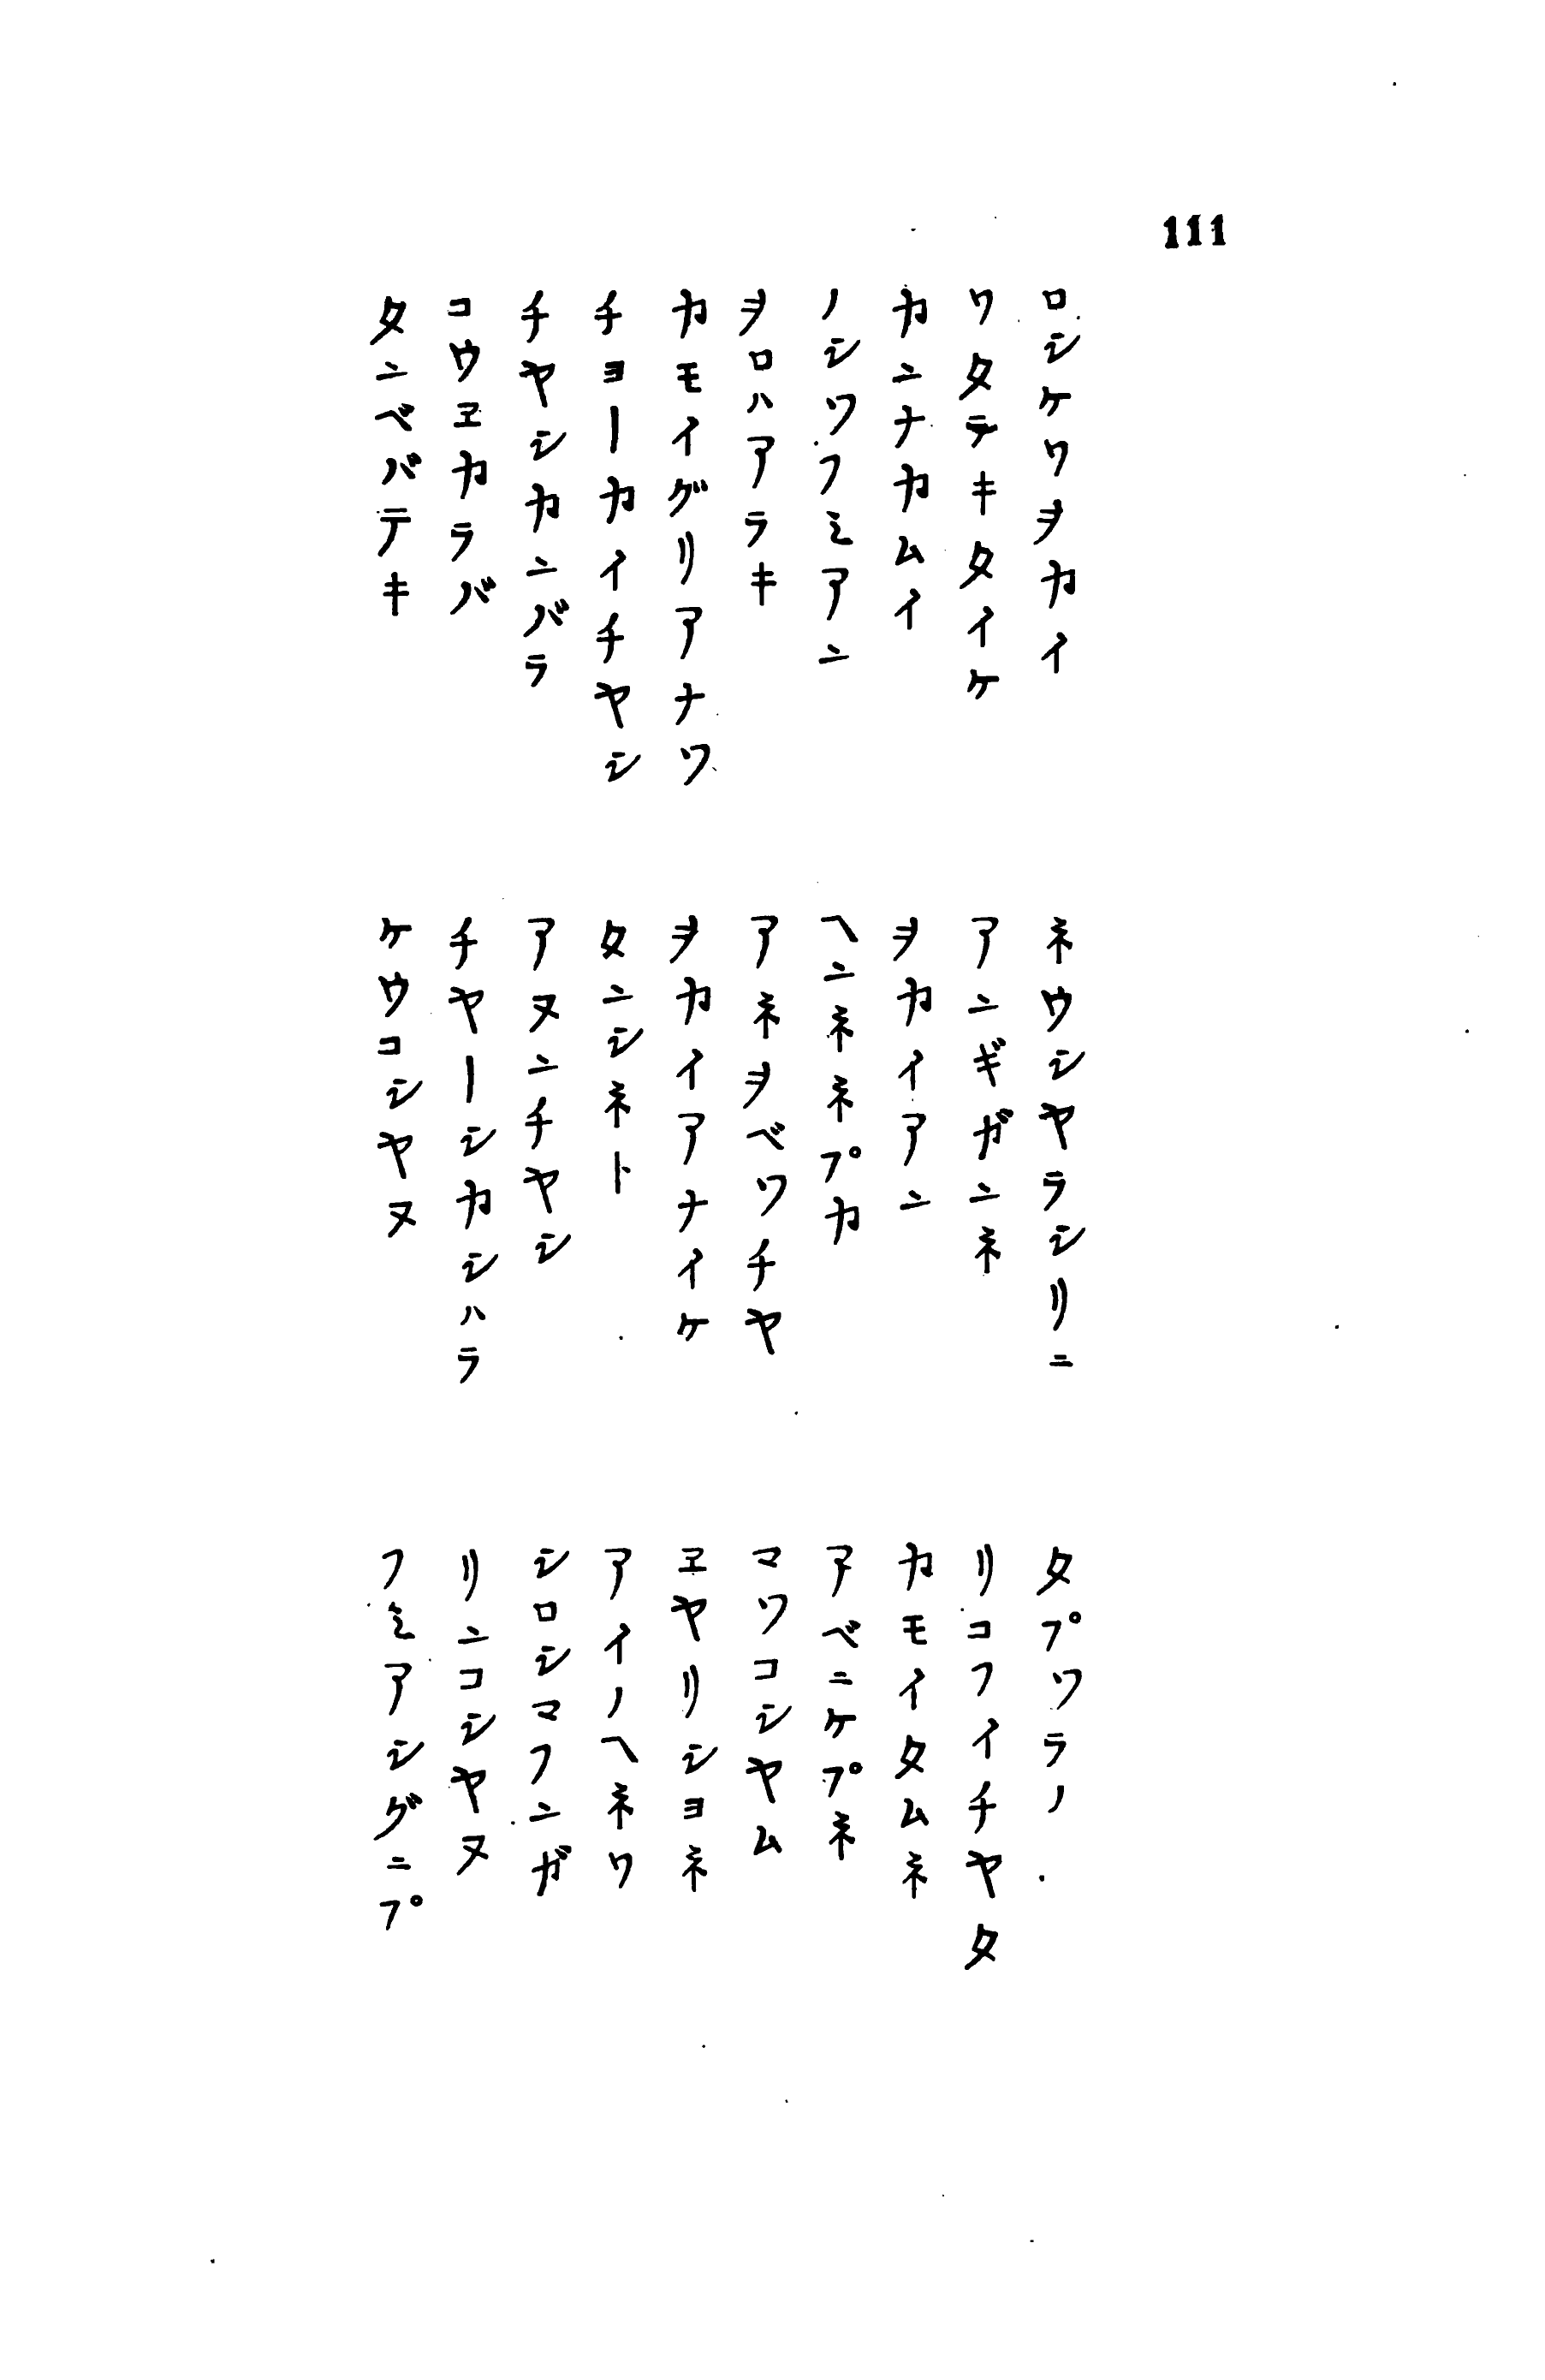 111
ロシケワヲカイ
ワタテキタイケ
カンナカムイ
ノシツフミアン
ヲロハアラキ
カモイグリアナツ
チヨーカイチヤシ
チヤシカンバラ
コウヱカラバ
タンベバテキ
ネウシヤラシリニ
アンギガンネ
ヲカイアン
ヘンネネプカ
アネヲベツチヤ
ヲカイアナイケ
タンシネト
アヌンチヤシ
チヤーシカシハラ
ケウコシヤヌ
タプツラノ
リコフイチヤタ
カモイタムネ
アベニケプネ
マツコシヤム
ヱヤリシヨネ
アイノヘネワ
シロシマフンガ
リンコシヤヌ
フミアシグニプ